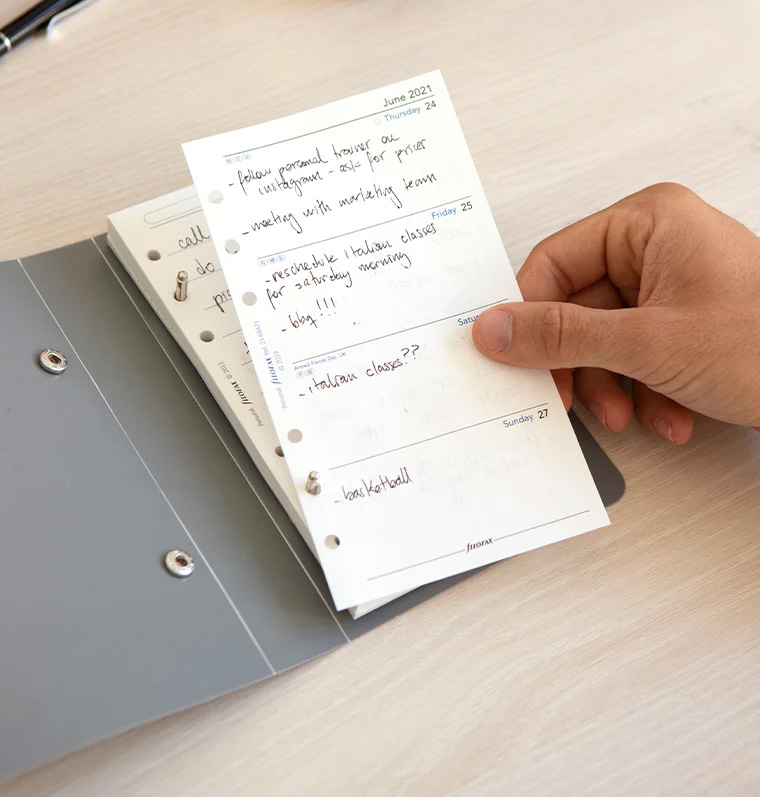 June 2021
Thursday 24
- follow personal trainer on
instagram - ask for prices
- meeting with marketing team
Friday 25
- reschedule italian classes
for saturday morning
- bbq!!!
Satu
Armed Forces Day, UK
- italian classes??
Sunday 27
- basketball
fILOFAX
Personal fILOFAX © 2013
call
do